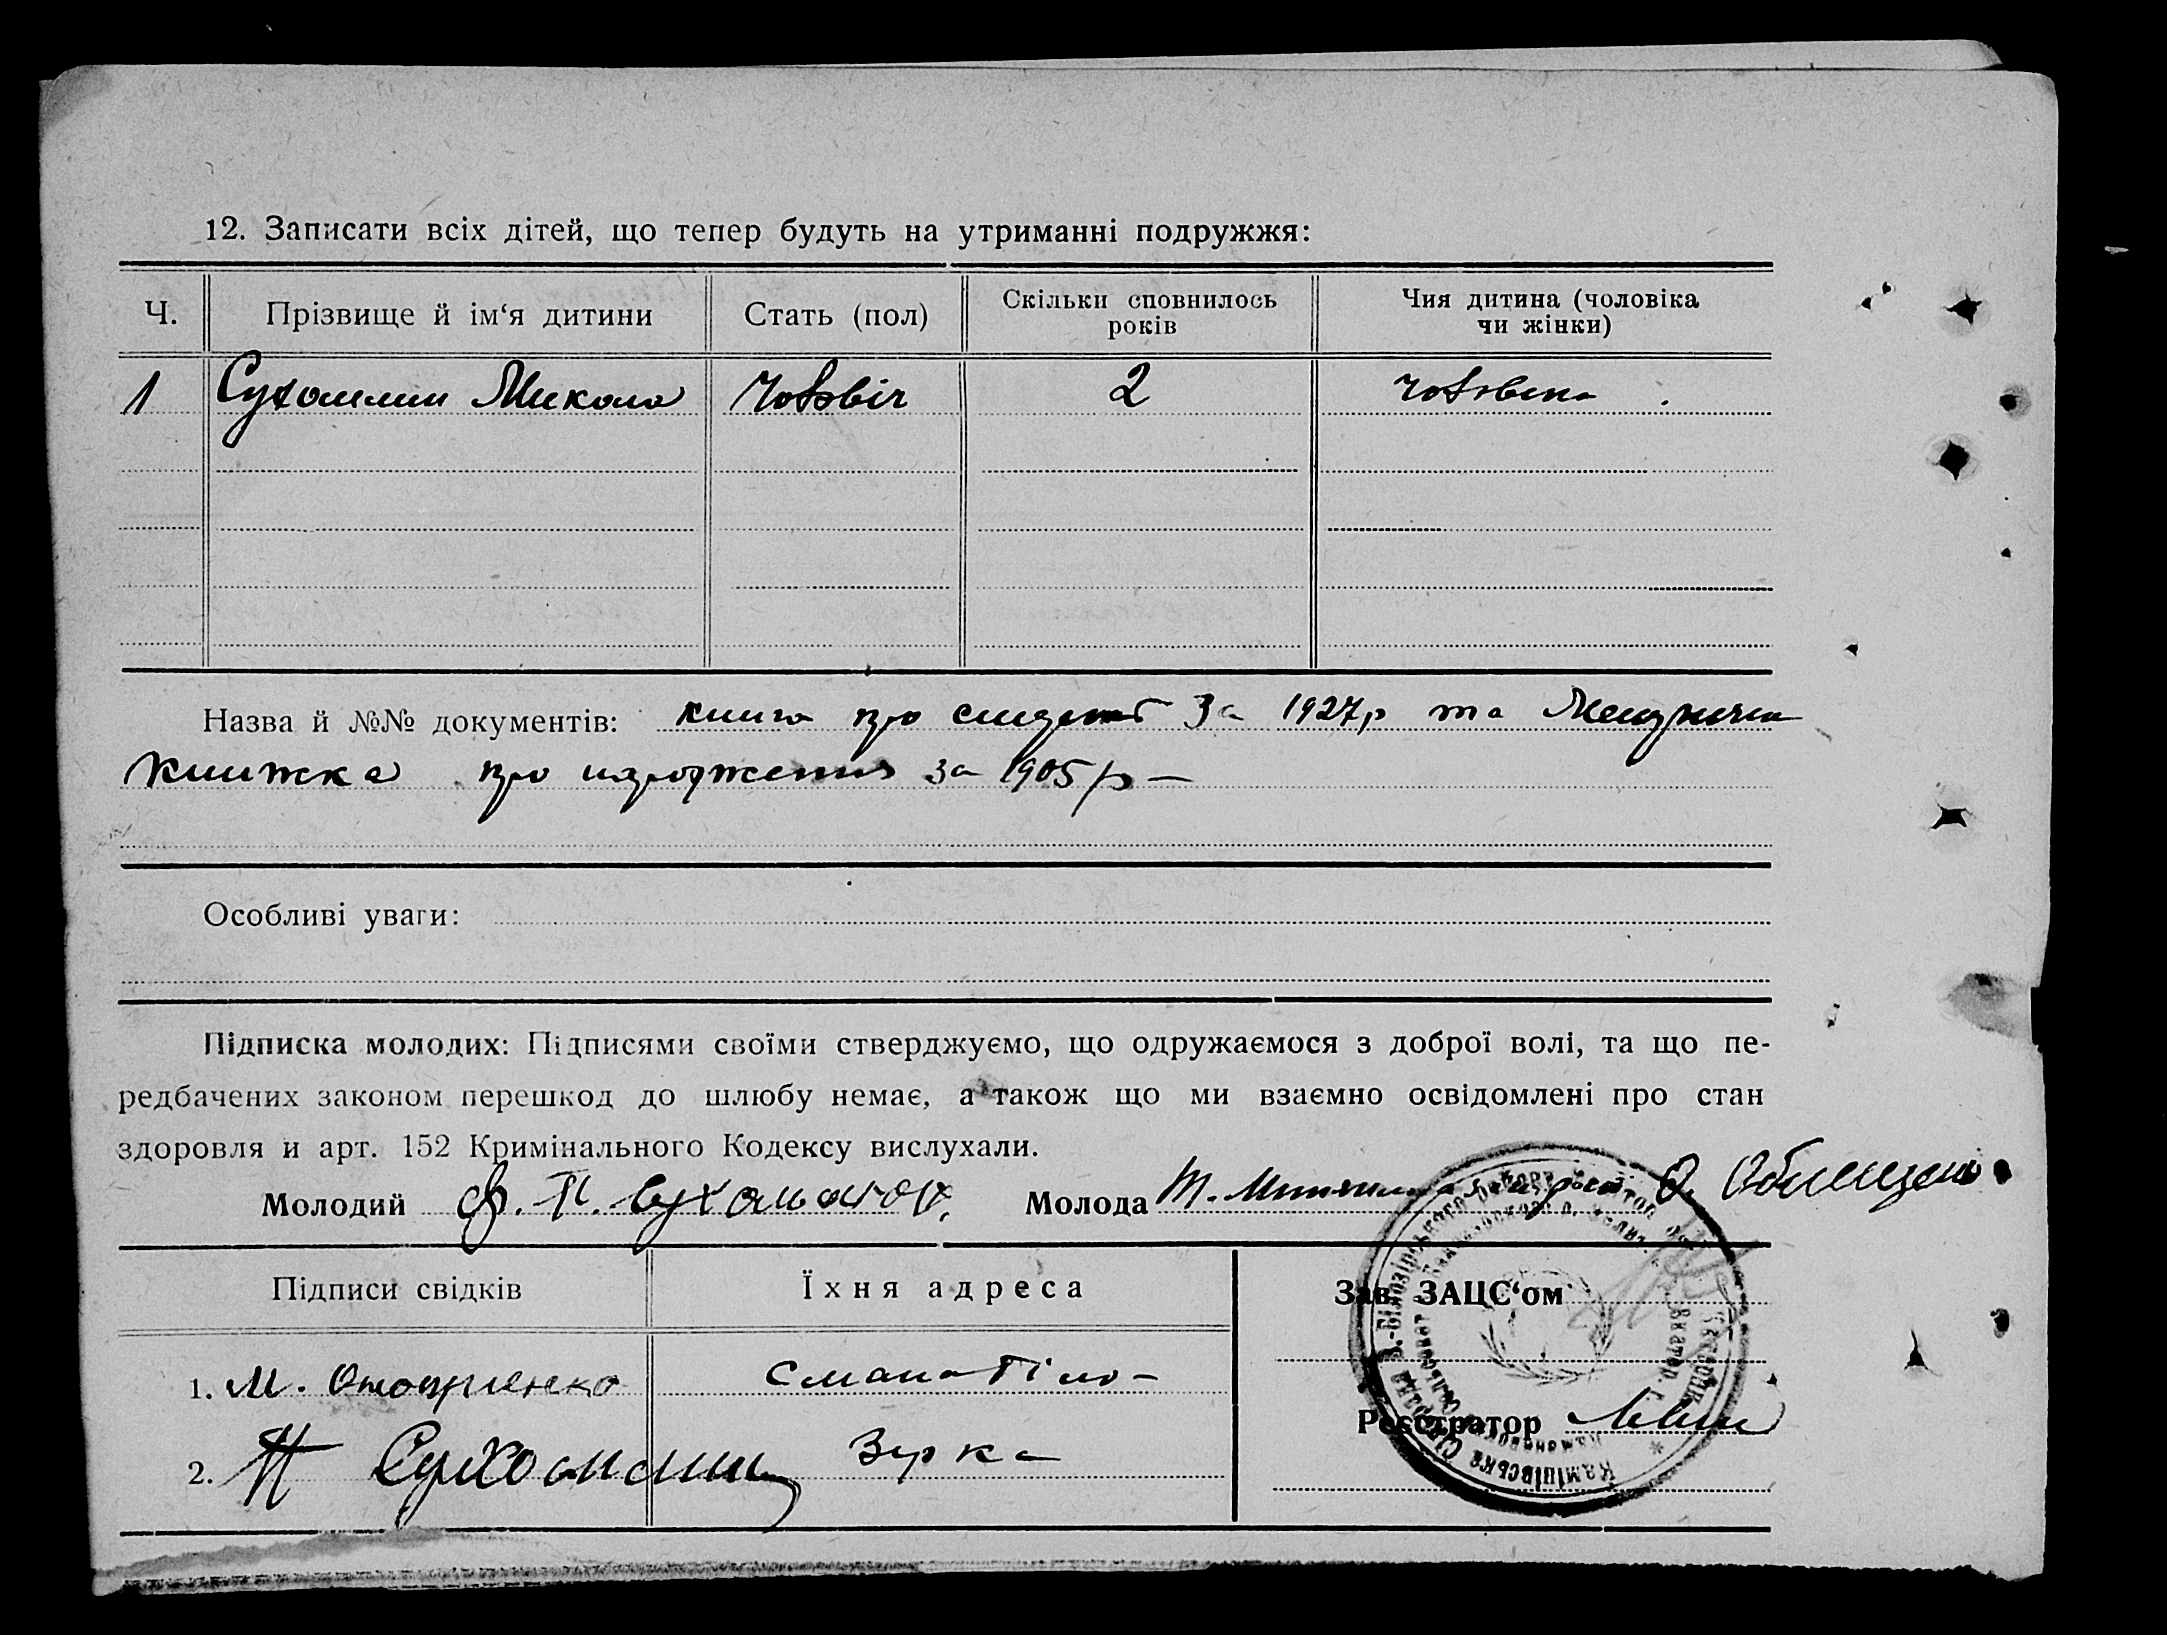 12. Записати всіх дітей, що тепер будуть на утриманні подружжя:
Ч. Прізвище й ім‘я дитини Стать (пол) Скільки сповнилось років Чия дитина (чоловіка чи жінки)
1 Сухомлин Микола Чоловіч 2 чоловіка
Назва й №№ документів: книга про за 1927р та Метрична
книжка про народження за 1905р —
Особливі уваги:
Підписка молодих: Підписями своїми стверджуємо, що одружаємося з доброї волі, та що пе-
редбачених законом перешкод до шлюбу немає, а також що ми взаємно освідомлені про стан
здоровля и арт. 152 Кримінального Кодексу вислухали.
Молодий Ф. П. Молода О.
Підписи свідків Їхня адреса Зав. ЗАЦС‘ом
1. М.
Реєстратор
2. Сухомлин